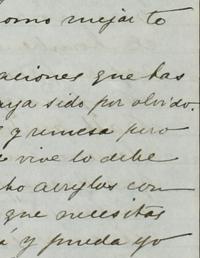 como mejor te
aciones que has
aya sido por olvido.
y remesa pero
vive lo debe
con
que necesitas
y pueda yo